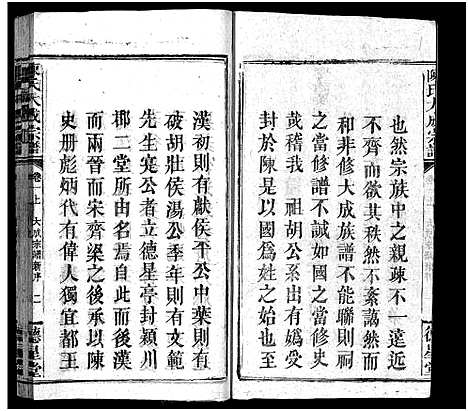 陳氏大成宗譜
也然宗族中之親疎不一遠近
不齊而欲其秩然不紊藹然而
和非修大成族譜不能聯則祠
之當修譜不誠如國之當修史
哉稽我 祖胡公系出有嬀受
封於陳是以國爲姓之始當
漢初則有獻侯平公中葉則有
破胡壯侯湯公季年則有文範
先生寔公者立德星亭封潁川
郡二堂所由名焉自此而後漢
晉而兩宋齊梁之後承以陳
史册彪炳代有偉人獨宜都王
陳氏大成宗譜
卷一上
大成宗譜新序
二
德星堂